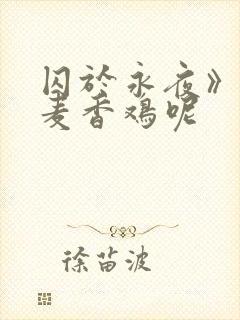 囚於永夜》
麦香鸡呢
徐苗波